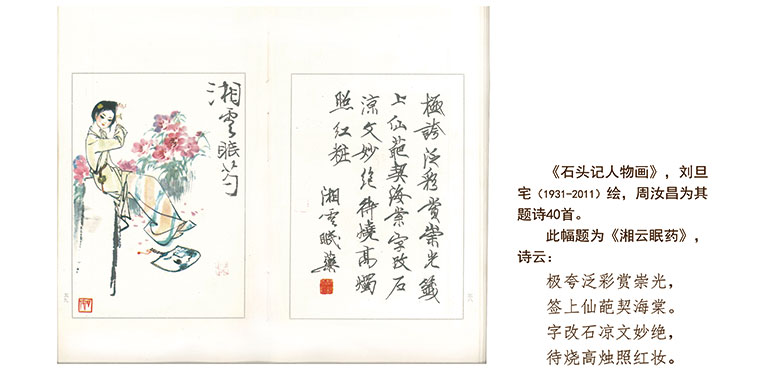 湘雲眠芍
極誇泛彩賞崇光籤
上仙葩契海棠字改石
涼文妙絕待燒高燭
照紅粧
湘雲眠藥
《石头记人物画》,刘旦
宅(1931-2011)绘,周汝昌为其
题诗40首。
此幅题为《湘云眠药》,
诗云:
极夸泛彩赏崇光,
签上仙葩契海棠。
字改石凉文妙绝,
待烧高烛照红妆。